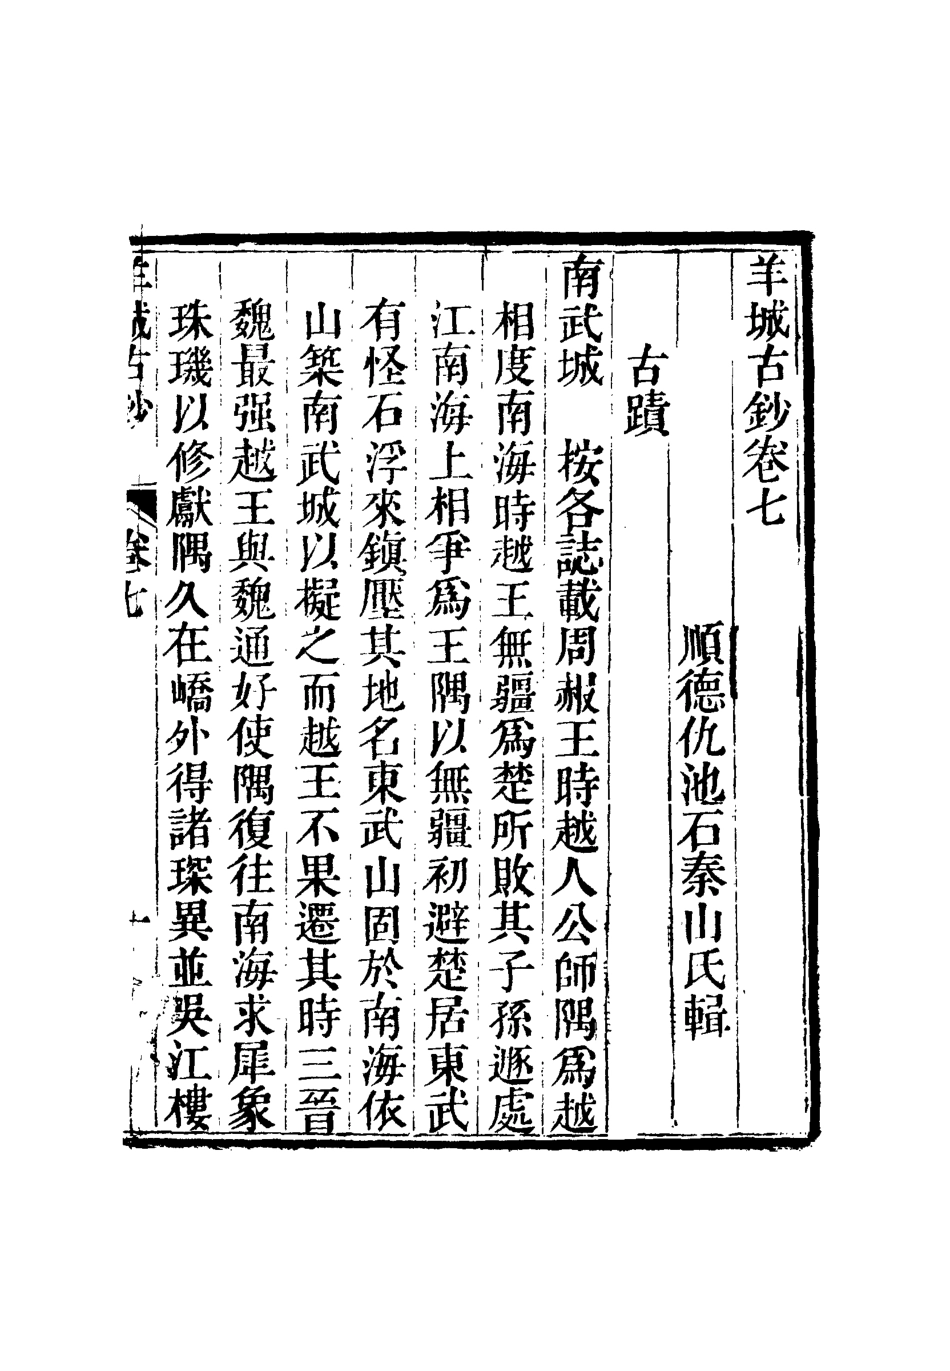 羊城古鈔卷七
順德仇池石秦山氏輯
古蹟
南武城　按各誌載周赧王時越人公師隅爲越
相度南海時越王無疆爲楚所敗其子孫遯處
江南海上相爭爲王隅以無疆初避楚居東武
有怪石浮來鎭壓其地名東武山固於南海依
山築南武城以擬之而越王不果遷其時三晉
魏最强越王與魏通好使隅復往南海求犀象
珠璣以修獻隅久在嶠外得諸琛異並吳江樓
羊城古鈔
卷七